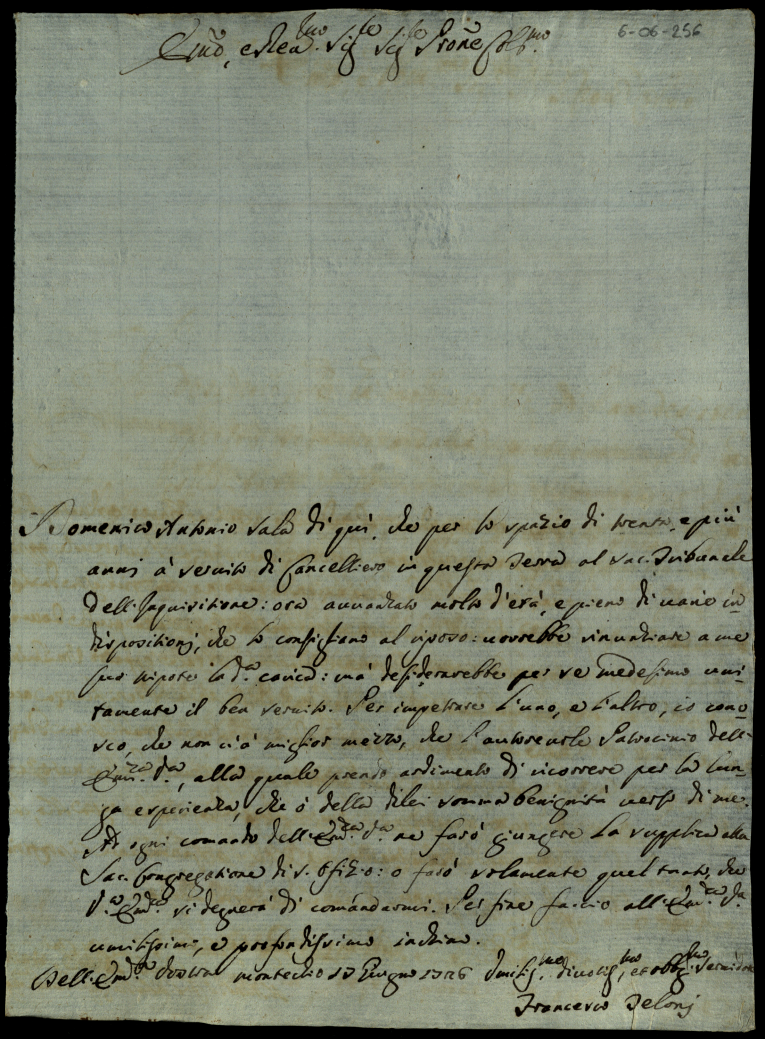 6-06-256
Em̃o, e Reu.mo Sig.re Sig.re Prone Col.mo
Domenico Antonio Sala di quì, che per lo spazio di trenta, e più
anni à seruito di Cancelliero in questa Terra al Sac. Tribunale
dell'Inquisitione: ora auuanzato molto d'età, e pieno di uarie in-
dispositioni, che lo consigliano al riposo: uorrebbe rinunziare a me
suo nipote la d.a carica: mà desiderarebbe per se medesimo uni-
tamente il ben seruito. Per impetrare l'uno, e l'altro, io cono-
sco, che non ci à miglior mezzo, che l'autoreuole Patrocinio dell'
Em.za V.a, alla quale prendo ardimento di ricorrere per la lun-
ga esperienza, che ò della di lei somma benignità uerso di me.
Ad ogni comando dell'Em.za V.a ne farò giungere la supplica alla
Sac. Congregatione di S. Offizio: o farò solamente quel tanto, che
V.a Em.za si degnerà di comandarmi. Per fine faccio all'Em.za V.a
umilissimo, e profondissimo inchino.
Dell'Em.za Vostra Montechio Giugno Umiliss.mo, Diuotiss.mo, et obblig.mo Seruidore
Francesco